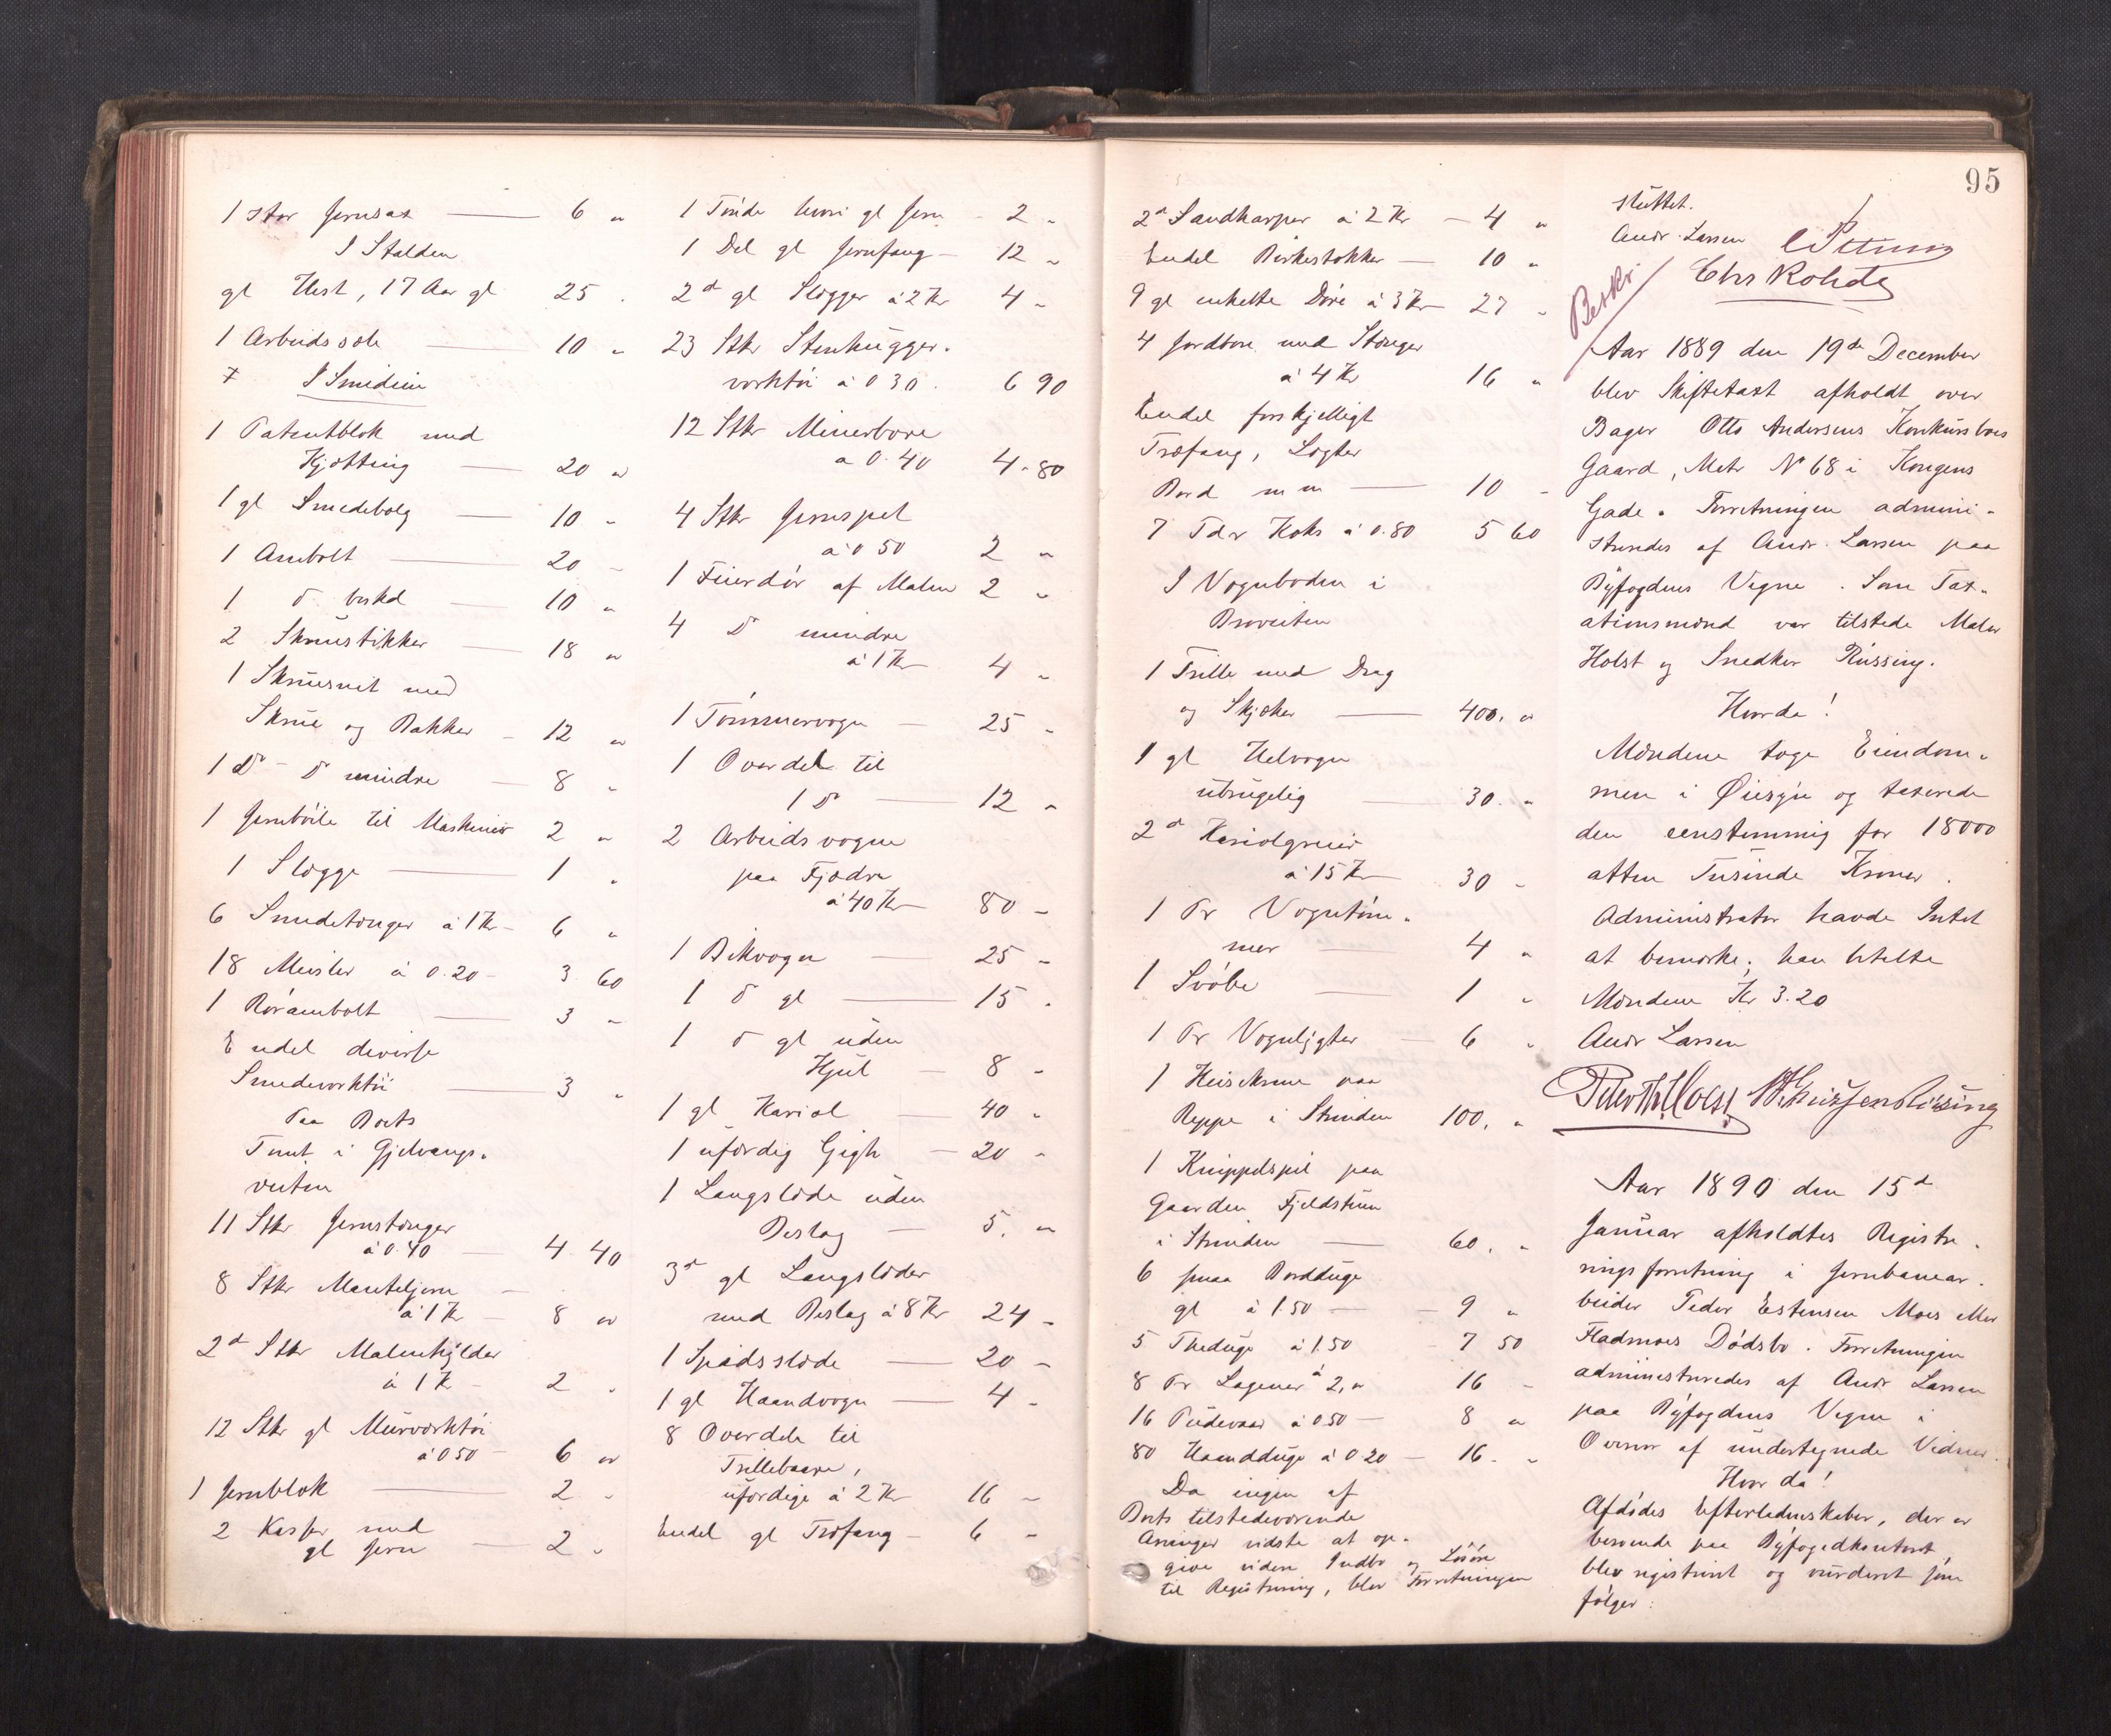 1 stor Jernsax — 6 "
I Stalden
gl Hest, 17 Aar gl 25 "
1 Arbeidssele — 10 "
I Smedien
1 Patentblok med
Kjætting — 20 "
1 gl Smedebelg — 10 "
1 Ambolt — 20 "
1 do beskd — 10 "
2 Skruestikker — 18 "
1 Skruesnit med
Skrue og Bakker — 12 "
1 Do Do mindre — 8 "
1 Jernbøile til Maskiner 2 "
1 Slægge — 1 "
6 Smedetænger à 1 Kr — 6 "
18 Meisler à 0.20 — 3 60
1 Rørambolt — 3 "
Endel diverse
Smedeverktøi — 3 "
Paa Boets
Tomt i Gjelvangs-
veiten
11 Stkr Jernstænger
à 0.40 — 4 40
8 Stkr
à 1 Kr — 8 "
2 Stkr Malmhjul
à 1 Kr — 2 "
12 Stkr gl Murværktøi
à 0 50 — 6 "
1 Jernblok — 2 "
2 Kasser med
gl Jern — 2 "
1 Tønde hvori gl Jern — 2 "
1 Del gl Jernfang — 12 "
2 gl Slægger à 2 Kr 4 "
23 Stkr Stenhugger-
verktøi à 0 30. 6 90
12 Stkr Minerbore
à 0.40 4.80
4 Stkr Jernspet
à 0 50 2 "
1 Fierdør af Malm 2 "
4 Do mindre
à 1 Kr 4 "
1 Tømmervogn — 25 "
1 Overdel til
1 Do — 12 "
2 Arbeidsvogne
paa Fjædre
à 40 Kr 80 "
1 Bikvogn — 25 "
1 do gl — 15 "
1 do gl uden
Hjul — 8 "
1 gl Kariol — 40 "
1 ufærdig Gigh — 20 "
1 Langslæde uden
Beslag — 5. "
3 gl Langslæder
med Beslag à 8 Kr 24 "
1 Spidsslæde — 20 "
1 gl Haandvogn — 4 "
8 Overdele til
Trillebaare,
ufærdige à 2 Kr 16 "
Endel gl Træfang — 6 "
95
2 Sandharper à 2 Kr — 4 "
Endel Birkestokker — 10 "
9 gl enkelte Døre à 3 Kr — 27 "
4 Jordbore med Stænger
à 4 Kr 16 "
Endel forskjelligt
Træfang, Lægter
Bord m m — 10 "
7 Tdr Koks à 0.80 5 60
I Vognboden i
Broveiten
1 Trille med Drag
og Skjæker — 400. "
1 gl Helvogn
ubrugelig — 30. "
2 Kariolgreier
à 15 Kr 30 "
1 Pr Vogntøm-
mer — 4 "
1 Svøbe — 1 "
1 Pr Vognlygter — 6 "
1 Heiskran paa
Reppe i Strinden 100. "
1 Knippelspil paa
Gaarden Fjeldstuen
i Strinden — 60. "
6 smaa Bordduge
gl à 1.50 — 9 "
5 Theduge à 1.50 — 7 50
8 Pr Lagener à 2," 16 "
16 Pudevaar à 0 50 — 8 "
80 Haandduge à 0 20 — 16. "
Da ingen af
Boets tilstedeværende
Arvinger vidste at op-
give videre Indbo og Løsøre
til Registrering, blev Forretningen
sluttet.
Andr. Larsen
Chr Rohde
Beskr.
Aar 1889 den 19de December
blev Skiftetaxt afholdt over
Bager Otto Andersens Konkursboes
Gaard, Matr No 68 i Kongens
Gade. Forretningen admini-
streredes af Andr. Larsen paa
Byfogdens Vegne. Som Tax-
ationsmænd var tilstede Maler
Holst og Snedker Rüssing.
Hvorda!
Mændene toge Eiendom-
men i Øiesyn og taxerede
den eenstemmig for 18000
atten Tusinde Kroner.
Administrator havde Intet
at bemærke; han betalte
Mændene Kr 3.20
Andr Larsen
Peter Th. Holst
Aar 1890 den 15d
Januar afholdtes Registre-
ringsforretning i Jernbanear-
beider Peder Estensen Moes eller
Fladmoes Dødsbo. Forretningen
administreredes af Andr Larsen
paa Byfogdens Vegne i
Overvær af undertegnede Vidner.
Hvor da!
Afdødes Efterladenskaber, der er
beroende paa Byfogedkontoret
blev registreret og vurderet som
følger: